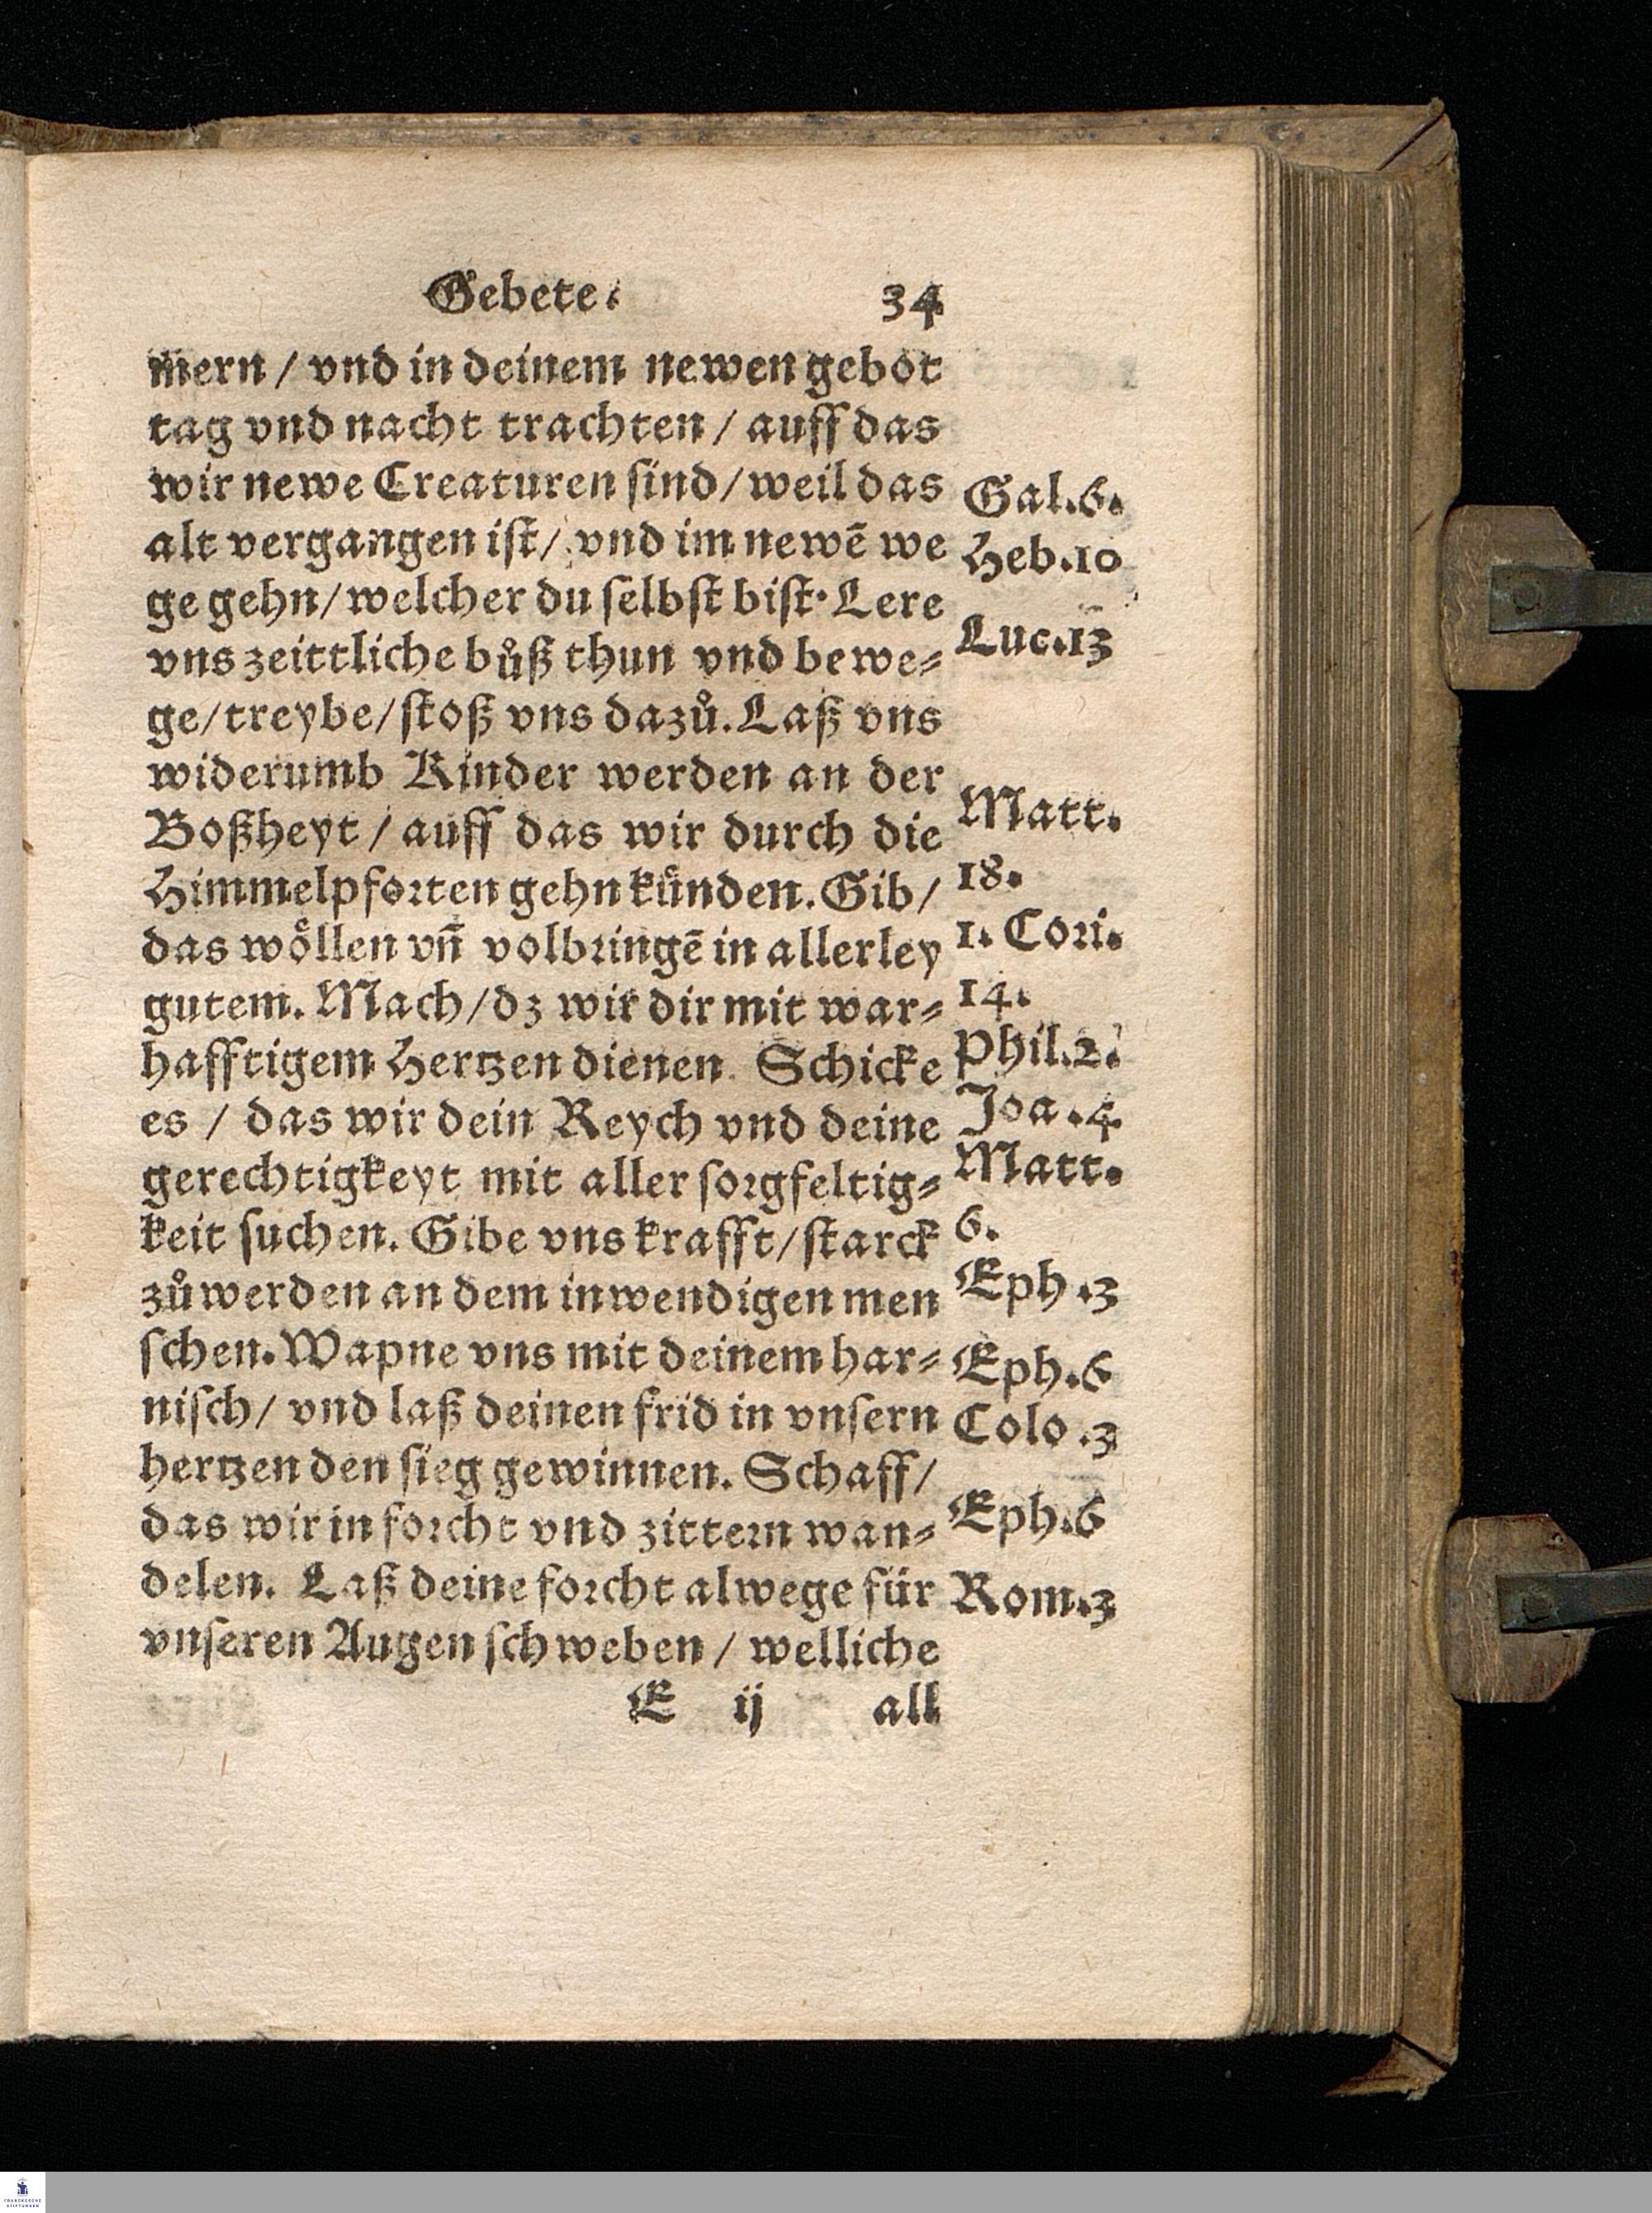 Gebete. 34
mern / vnd in deinem newen gebot
tag vnd nacht trachten / auff das
wir newe Creaturen sind / weil das
alt vergangen ist / vnd im newē we
ge gehn / welcher du selbst bist. Lere
vns zeittliche bůß thun vnd bewe⸗
ge / treybe / stoß vns dazů. Laß vns
widerumb Kinder werden an der
Boßheyt / auff das wir durch die
Himmelpforten gehn kůnden. Gib /
das wöllen vn̄ volbringē in allerley
gutem. Mach / dz wir dir mit war⸗
hafftigem Hertzen dienen. Schicke
es / das wir dein Reych vnd deine
gerechtigkeyt mit aller sorgfeltig⸗
keit suchen. Gibe vns krafft / starck
zůwerden an dem inwendigen men
schen. Wapne vns mit deinem har⸗
nisch / vnd laß deinen frid in vnsern
hertzen den sieg gewinnen. Schaff /
das wir in forcht vnd zittern wan⸗
delen. Laß deine forcht alwege für
vnseren Augen schweben / welliche
E ij all
Gal.6.
Heb.10
Luc.13
Matt.
18.
1. Cori.
14.
Phil.2.
Joa.4.
Matt.
6.
Eph.3
Eph.6
Colo.3
Eph.6
Rom.3
FRANCKESCHE
STIFTUNGEN